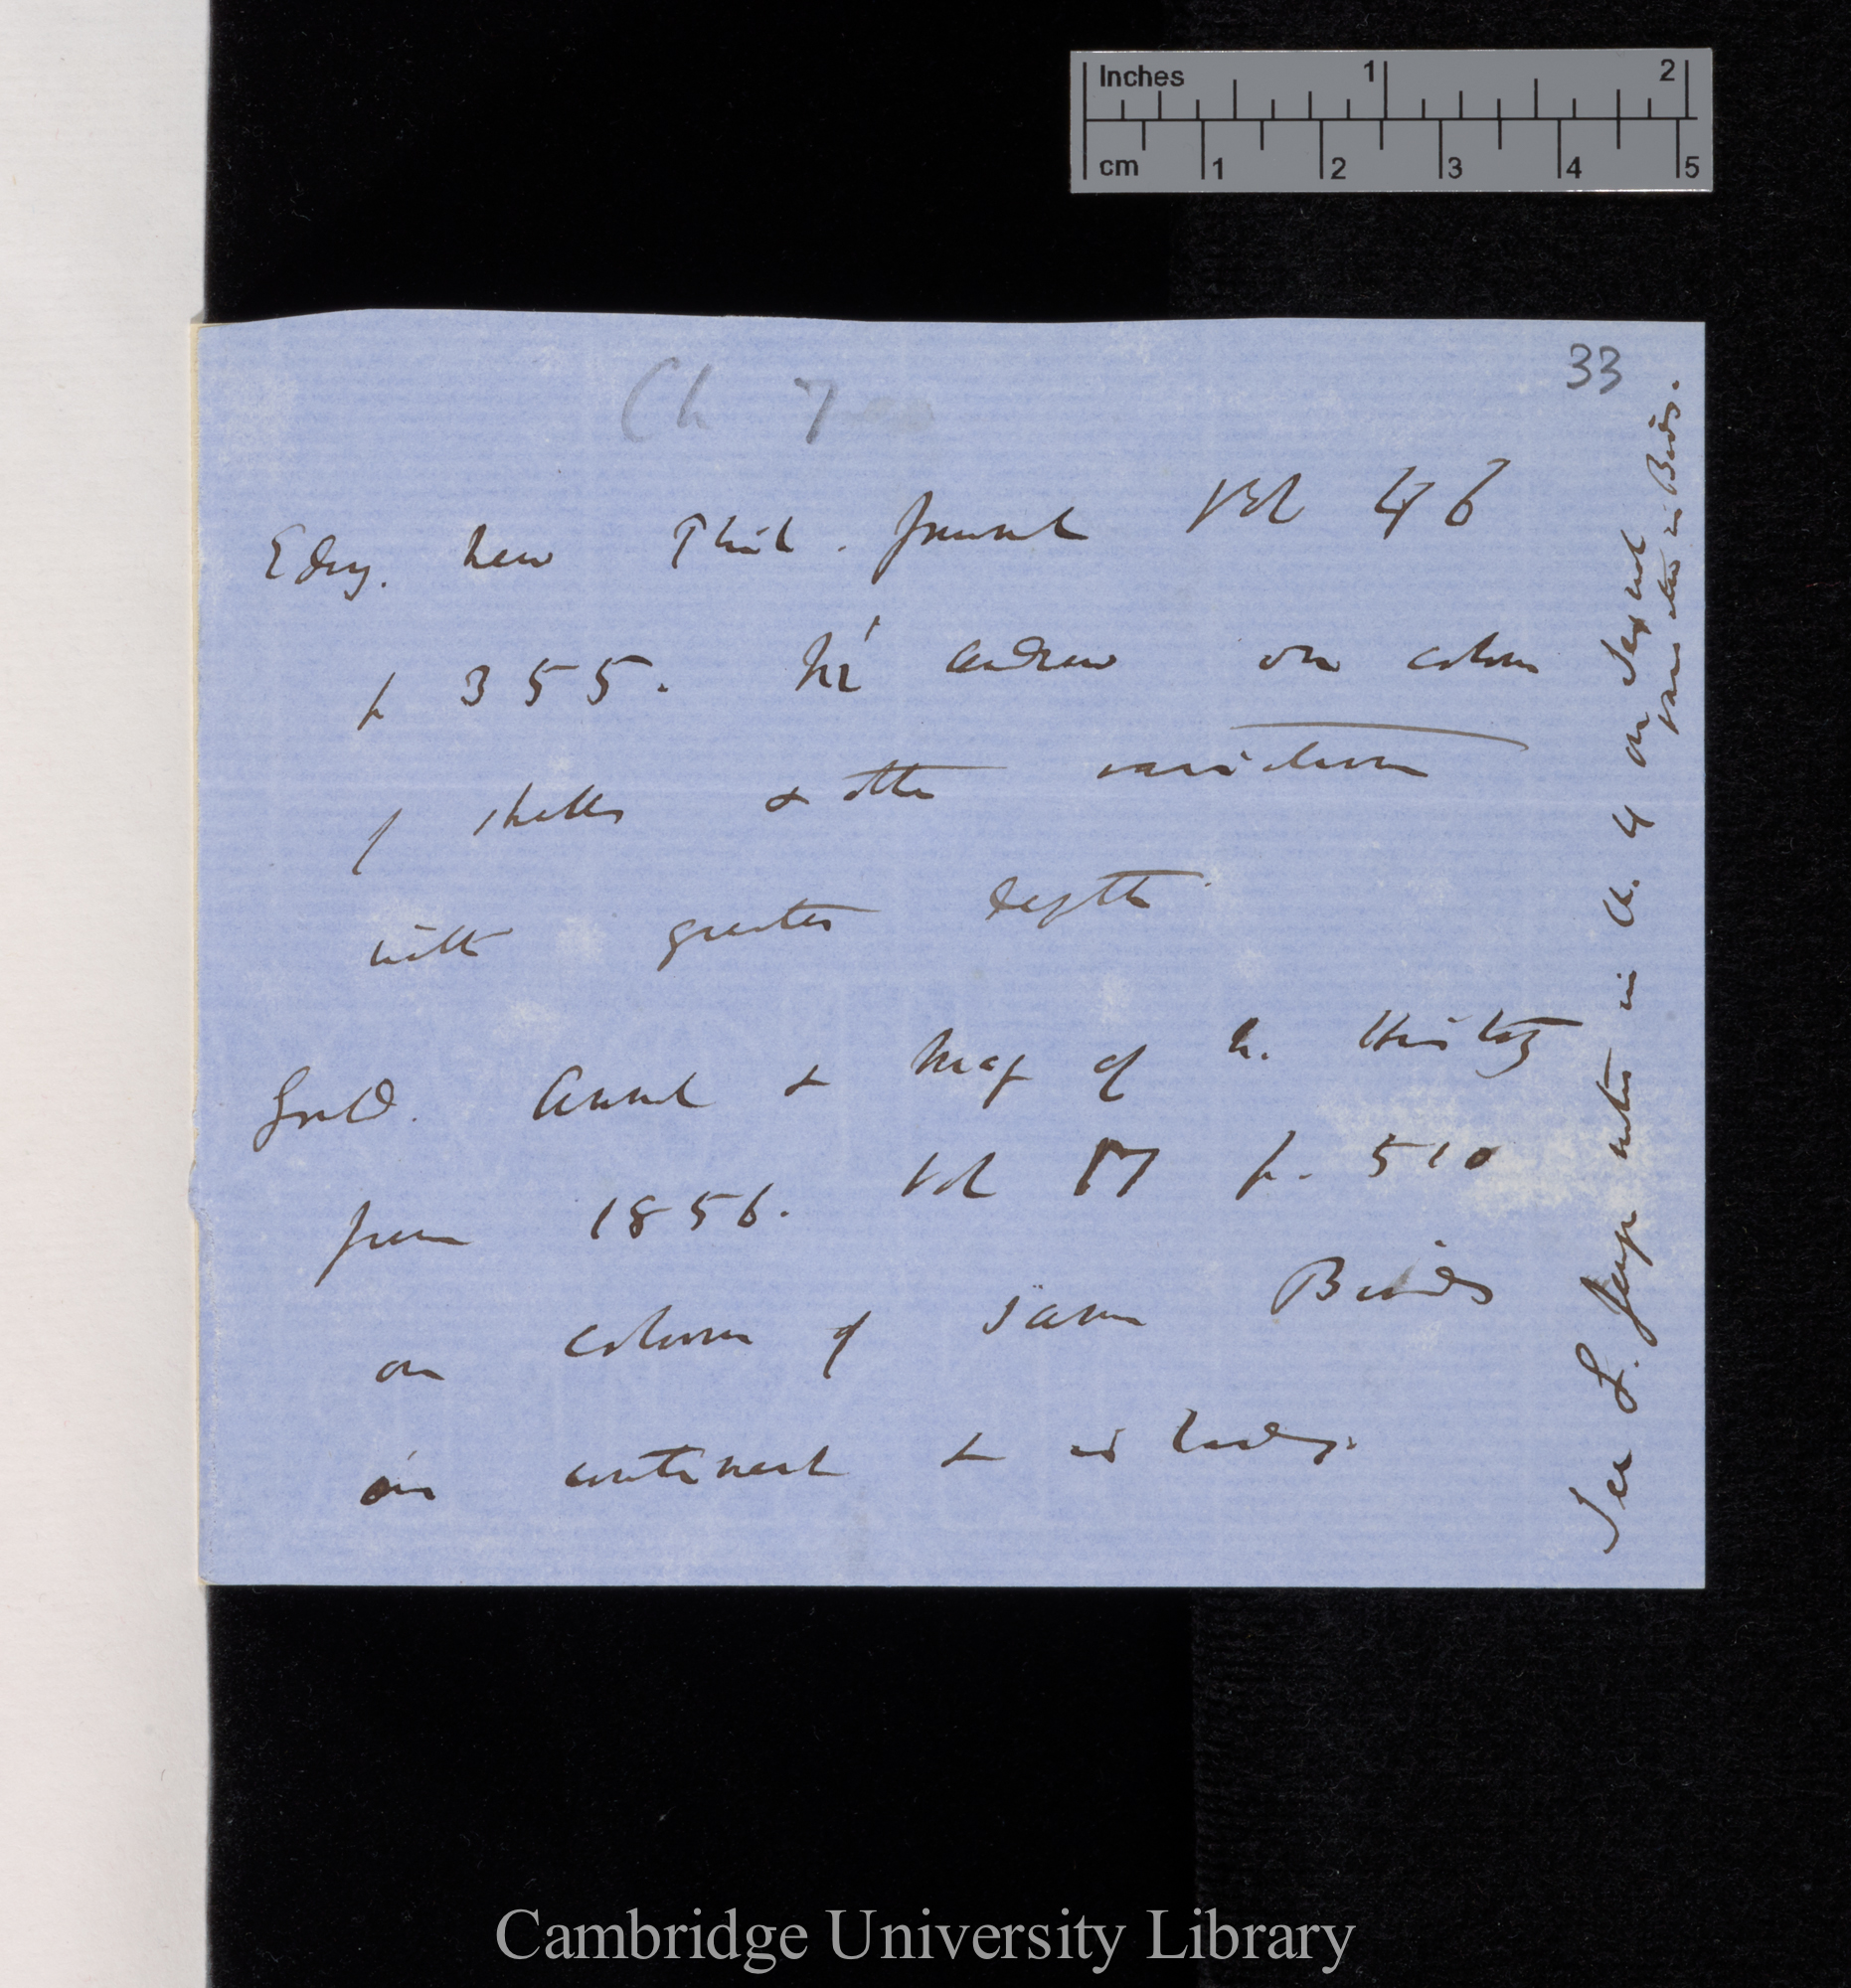 Inches 1 2
cm 1 2 3 4 5
33
Ch 7
Edin. New Phil. Journal Vol 46
p 355. Mr Andrew on colour
of shells & other variations
with greater depth.
Gould. Annal & Mag of N. History
June 1856. Vol 17 p. 510
on colours of same Birds
on continent & islands.
See L. Jenyns notes in Ch. 4 on
varieties in Birds.
Cambridge University Library